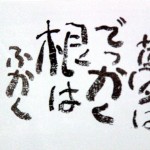 夢は
でっかく
根は
ふかく